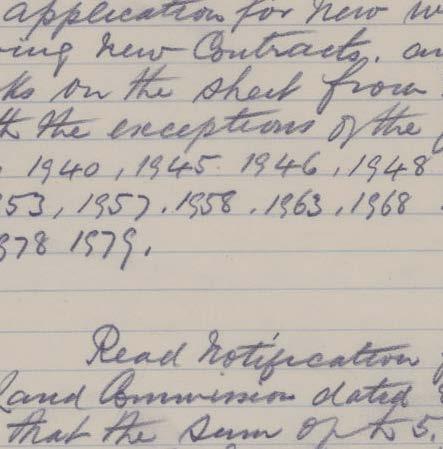 application for new
ing new Contracts. an
ks on the sheet from
th the exceptions of the
1940, 1945. 1946, 1948
953, 1957, 1958, 1963, 1968
978 1979.
Read Notification
Land Commission dated
that the sum up to 5.